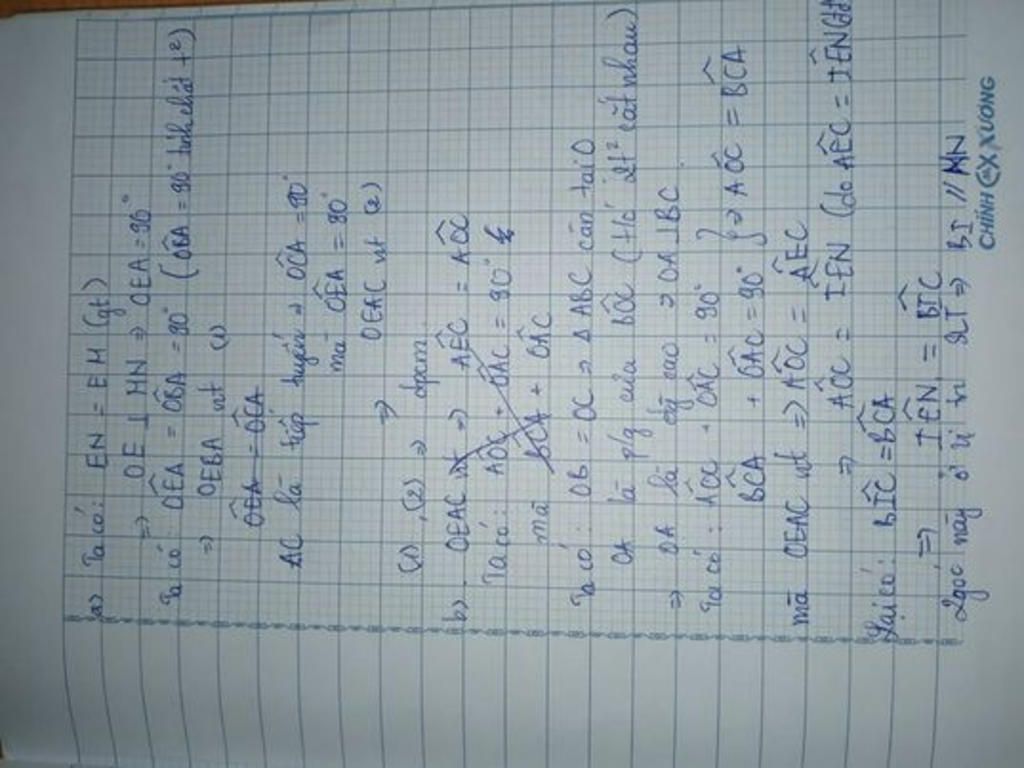 a) Ta có: EN = EM (gt)
=> OE ⊥ MN => OÊA = 90°
Ta có: OÊA = OB̂A = 90° (OB̂A = 90° tính chất t²)
=> OEBA nt (1)
OÊA = OĈA
AC là tiếp tuyến => OĈA = 90°
mà OÊA = 90°
=> OEAC nt (2)
(1), (2) => đpcm.
b) OEAC nt => AÊC = AÔC
Ta có: AÔC + OÂC = 90°
mà BĈA + OÂC
Ta có: OB = OC => Δ ABC cân tại O
OA là p/g của BÔC (t/c 2t² cắt nhau)
=> OA là đg cao => OA ⊥ BC
Ta có: AÔC + OÂC = 90°
BĈA + OÂC = 90° } => AÔC = BĈA
mà OEAC nt => AÔC = AÊC
=> AÔC = IÊN (do AÊC = IÊN (đđ
Lại có: BÎC = BĈA
=> IÊN = BÎC
2góc này ở vị trí SLT => BI // MN
CHÍNH XƯƠNG